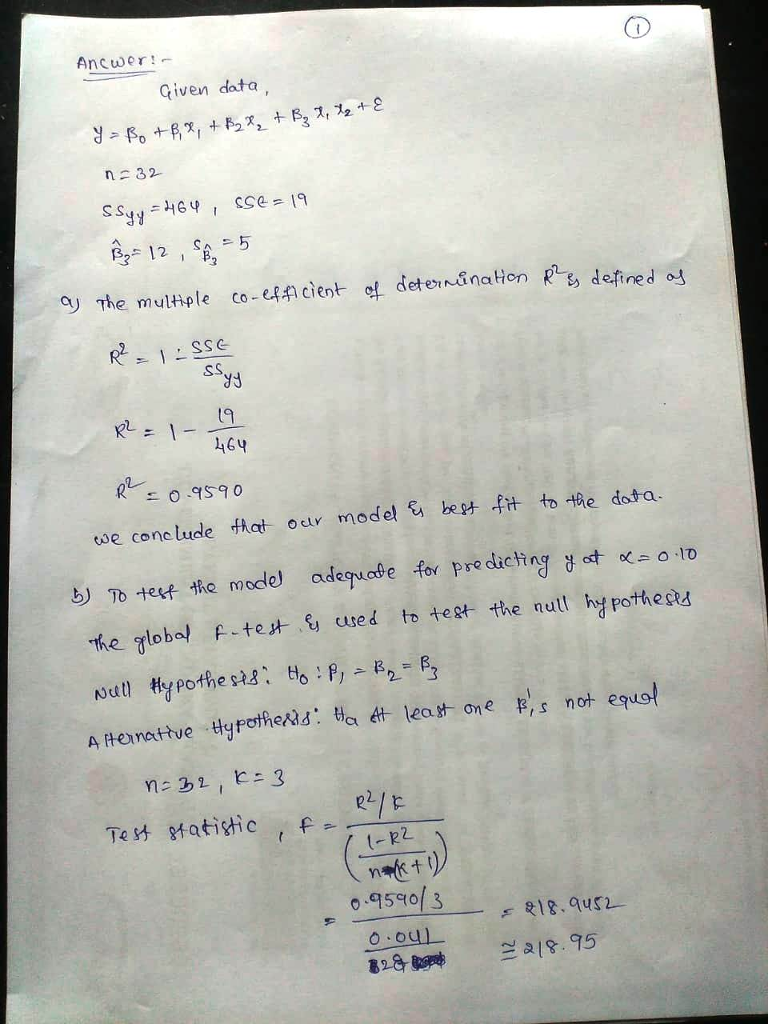 1
Ancwer:-
Given data,
y = β₀ + β₁x₁ + β₂x₂ + β₃ x₁ x₂ + ε
n = 32
SSyy = 464 , SSE = 19
β̂₃ = 12 , Sβ̂₃ = 5
a) The multiple co-efficient of determination R² is defined as
R² = 1 - SSE / SSyy
R² = 1 - 19 / 464
R² = 0.9590
we conclude that our model is best fit to the data.
b) To test the model adequate for predicting y at α = 0.10
The global F-test is used to test the null hypothesis
Null Hypothesis: H₀ : β₁ = β₂ = β₃
Alternative Hypothesis: Ha At least one β's not equal
n = 32 , K = 3
Test statistic , F = R²/K / (1-R² / n-(K+1))
= 0.9590/3 / (0.041 / 28) = 218.9452
≅ 218.95